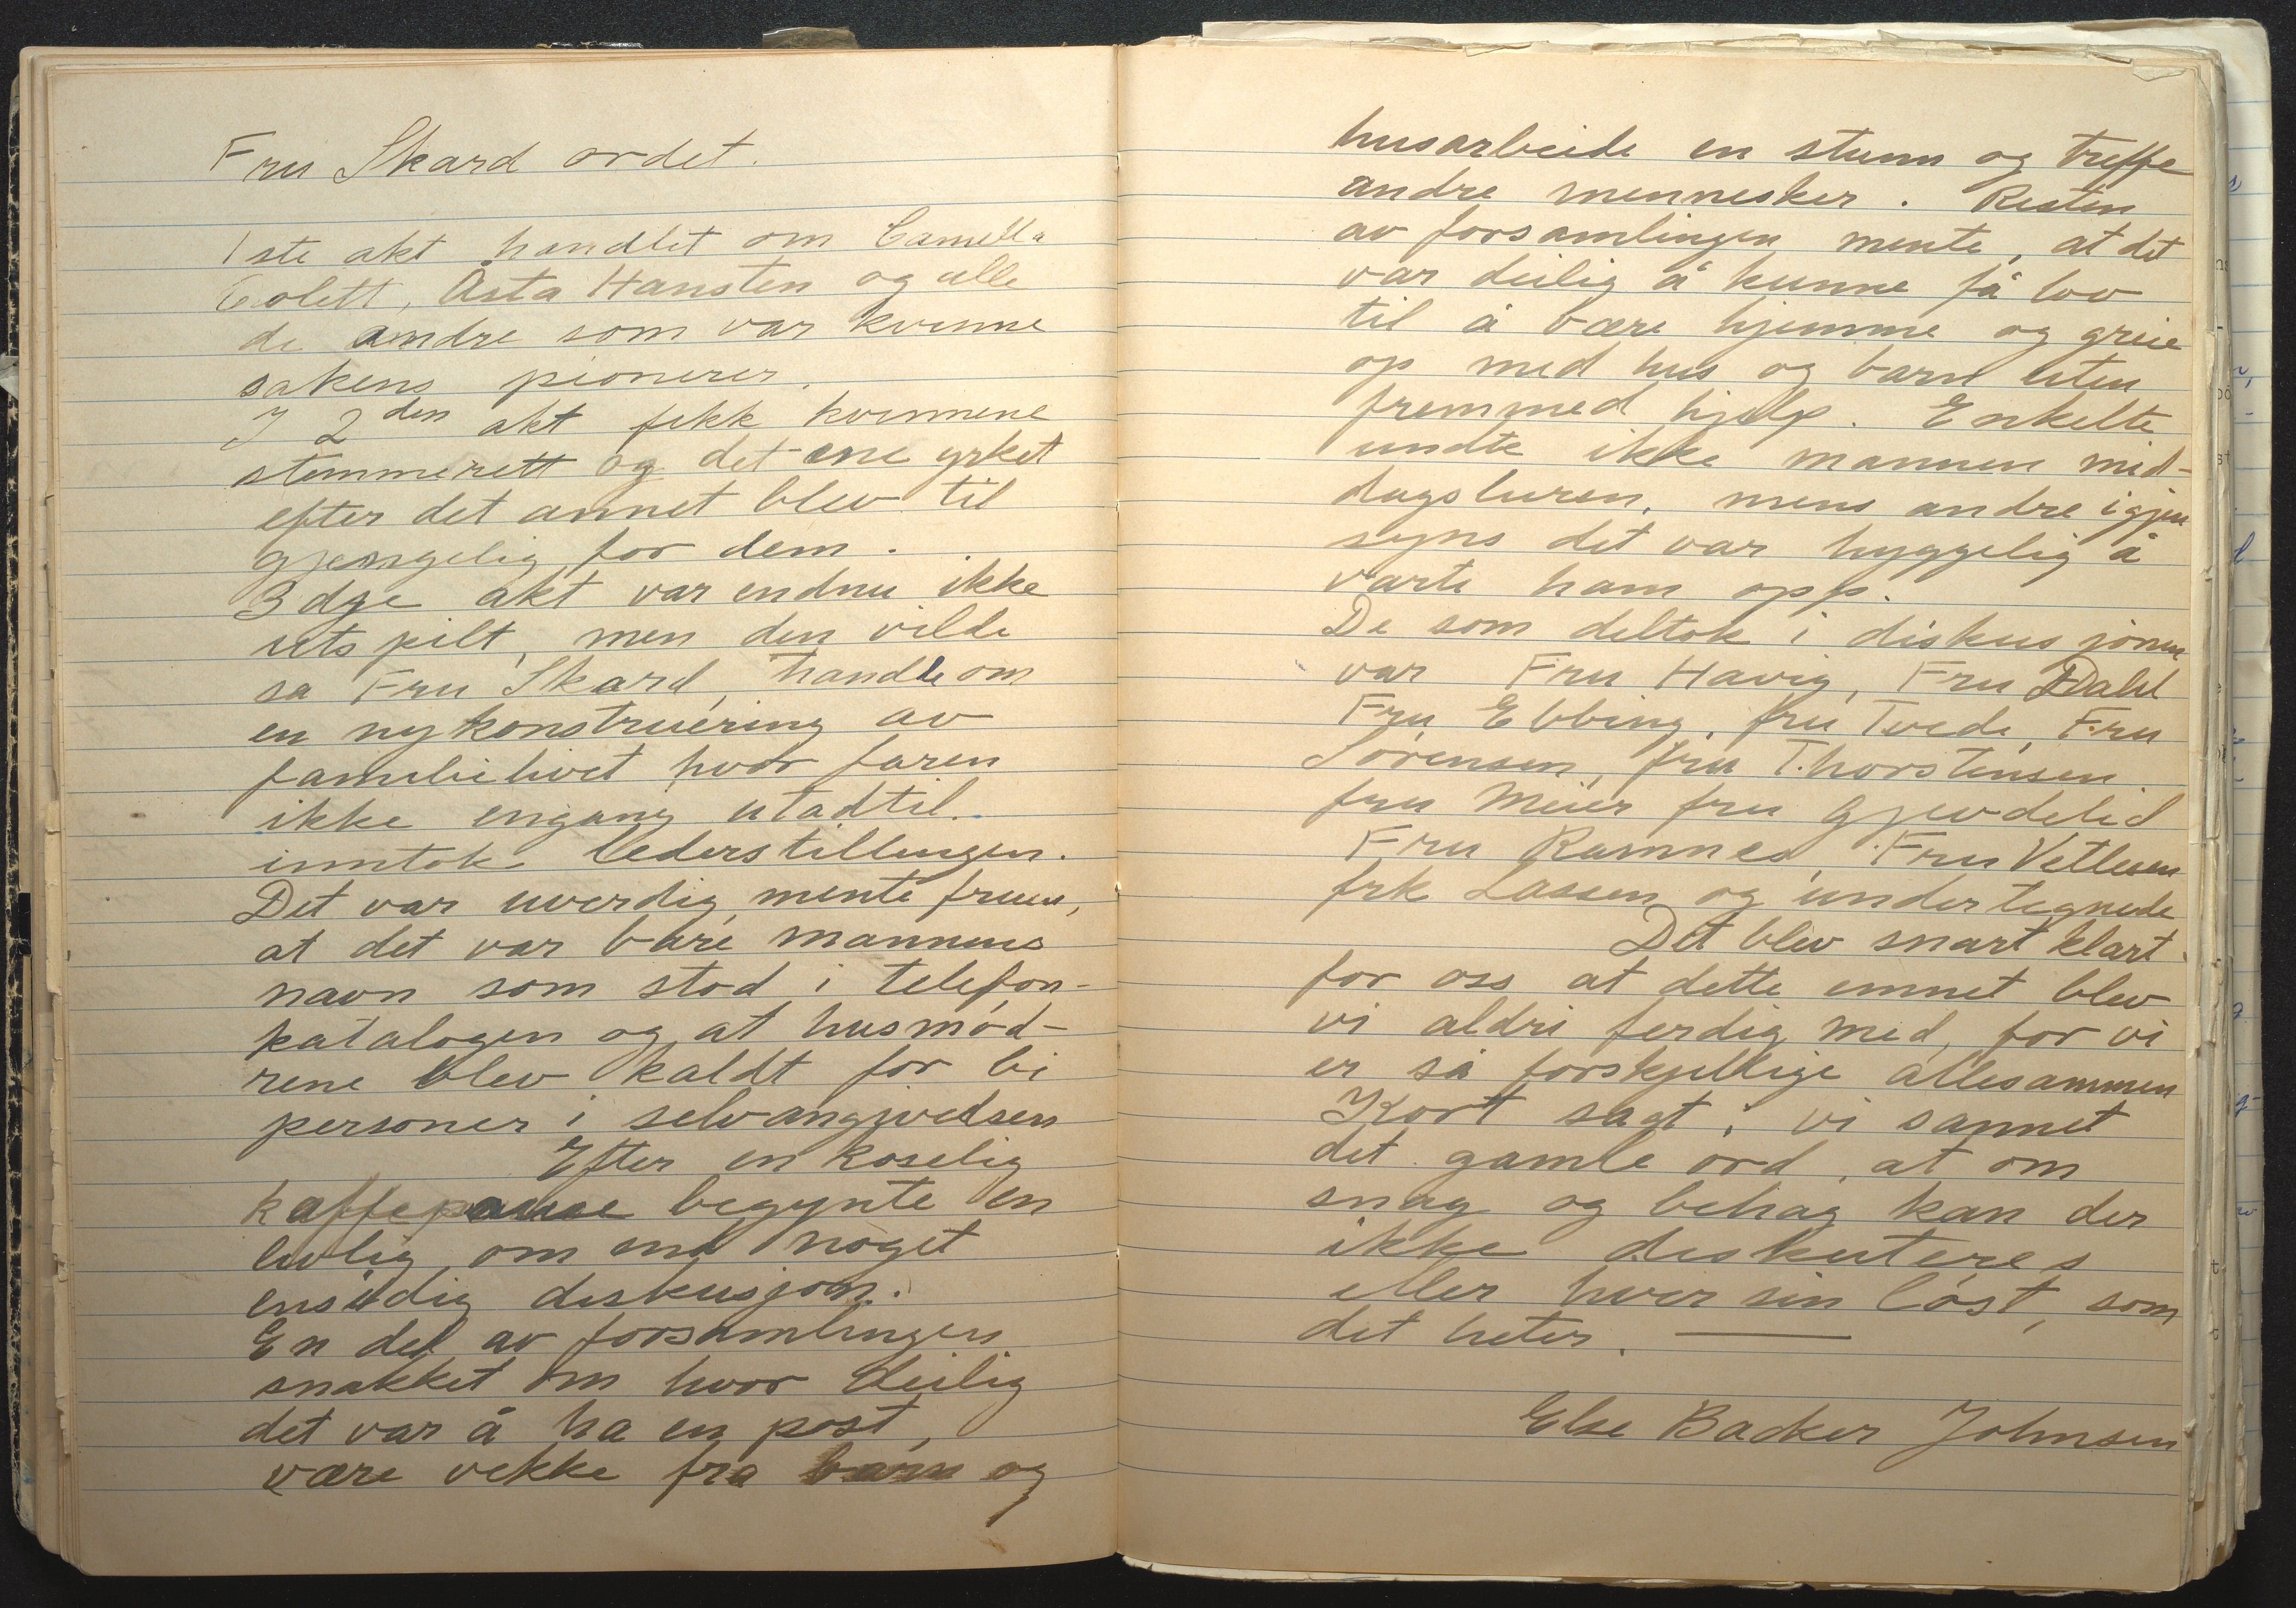 Fru Skard ordet.
1ste akt handlet om Camilla
Colett, Åsta Hansten og alle
de andre som var kvinne
sakens pionerer.
I 2den akt fikk kvinnene
stemmerett og det ene yrket
efter det annet blev til
gjengelig for dem.
3dge akt var endnu ikke
utspilt, men den vilde
sa Fru Skard, handle om
en nykonstruéring av
familielivet hvor faren
ikke engang utadtil.
inntok lederstillingen.
Det var uverdig, mente fruen,
at det var bare mannens
navn som stod i telefon-
katalogen og at husmød-
rene blev kaldt for bi
personer i selvangivelsen
Efter en koselig
kaffepause begynte en
livlig, om end noget
ensidig diskusjon.
En del av forsamlingen
snakket om hvor deilig
det var å ha en post,
være vekke fra barn og
husarbeide en stunn og treffe
andre mennesker. Resten
av forsamlingen mente, at det
var deilig å kunne få lov
til å være hjemme og greie
op med hus og barn uten
fremmed hjelp. Enkelte
undte ikke mannen mid-
dagsluren, mens andre igjen
syns det var hyggelig å
varte ham opp.
De som deltok i diskusjonen
var Fru Havig, Fru Dahl
Fru Ebbing, fru Tvede, Fru
Sørensen, fru Thorstensen
fru Meier fru Gjevdelid
Fru Ramnes, Fru Vetlesen
frk Lassen og undertegnede
Det blev snart klart
for oss at dette emnet blev
vi aldri ferdig med, for vi
er så forskjellige allesammen
Kort sagt; vi sannet
det gamle ord, at om
smag og behag kan der
ikke diskuteres
eller hver sin løst, som
det heter. —
Else Backer Johnsen